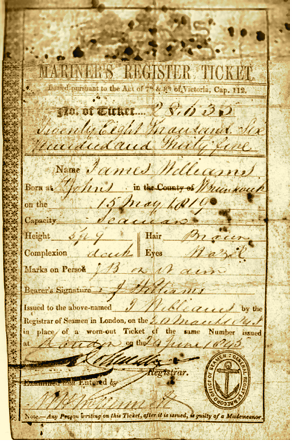 MARINER'S REGISTER TICKET.
Issued pursuant to the Act of 7th & 8th of Victoria, Cap. 112.
No. of Ticket 28635
Twenty Eight Thousand Six
Hundred and Thirty five
Name James Williams
Born at St Johns in the County of Brunswick
on the 15 May 1819
Capacity Seaman
Height 5/9 Hair Brown
Complexion dark Eyes Hazel
Marks on Person JB on arm
Bearer's Signature J Williams
Issued to the above-named J Williams by the
Registrar of Seamen in London, on the
in place of a worn-out Ticket of the same Number issued
at London on the 24 1845
Registrar.
Examined and Entered by
Note.—Any Person writing on this Ticket, after it is issued, is guilty of a Misdemeanor.